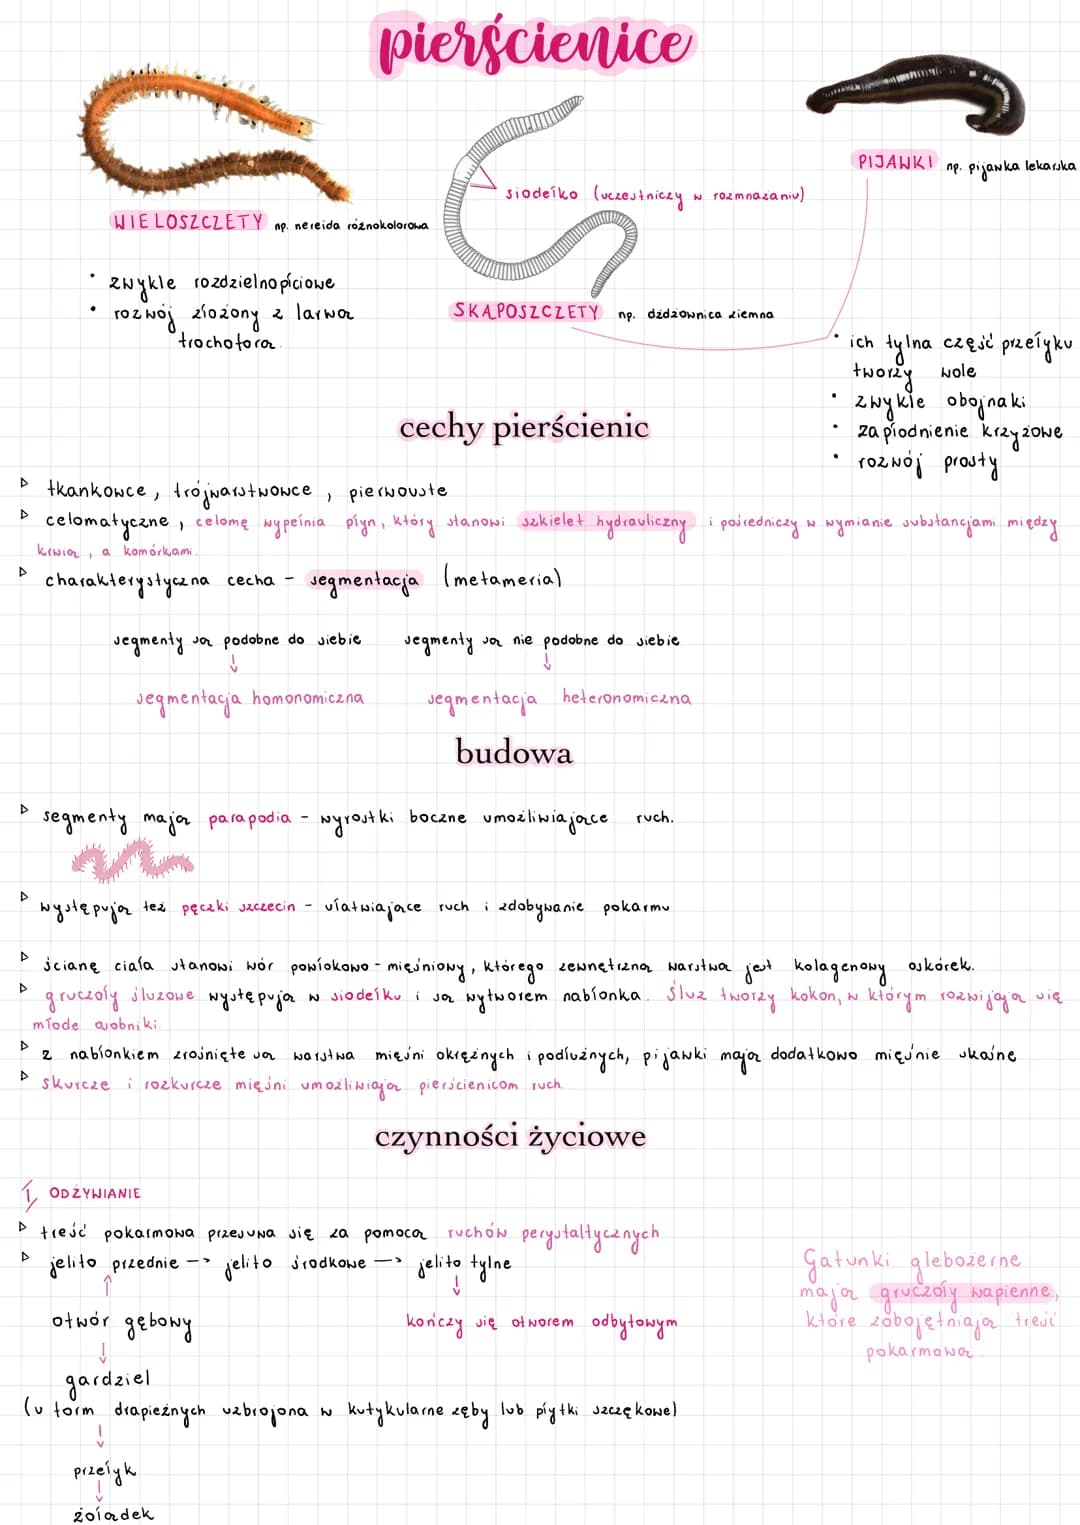 pierścienice
WIELOSZCZETY np. nereida różnokolorowa
siodełko (uczestniczy w rozmnażaniu)
SKĄPOSZCZETY np. dżdżownica ziemna
PIJAWKI np. pijawka lekarska
• zwykle rozdzielnopłciowe
• rozwój złożony z larwą
trochoforą
• ich tylna część przełyku
tworzy wole
• zwykle obojnaki
• zapłodnienie krzyżowe
• rozwój prosty
cechy pierścienic
▹ tkankowce, trójwarstwowce, pierwouste
▹ celomatyczne, celomę wypełnia płyn, który stanowi szkielet hydrauliczny i pośredniczy w wymianie substancjami między
krwią, a komórkami.
▹ charakterystyczna cecha - segmentacja (metameria)
segmenty są podobne do siebie segmenty są nie podobne do siebie
↓ ↓
segmentacja homonomiczna segmentacja heteronomiczna
budowa
▹ segmenty mają parapodia - wyrostki boczne umożliwiające ruch.
▹ występują też pęczki szczecin - ułatwiające ruch i zdobywanie pokarmu
▹ ścianę ciała stanowi wór powłokowo-mięśniowy, którego zewnętrzną warstwą jest kolagenowy oskórek.
▹ gruczoły śluzowe występują w siodełku i są wytworem nabłonka. Śluz tworzy kokon, w którym rozwijają się
młode osobniki.
▹ z nabłonkiem zrośnięte są warstwa mięśni okrężnych i podłużnych, pijawki mają dodatkowo mięśnie skośne
▹ skurcze i rozkurcze mięśni umożliwiają pierścienicom ruch.
czynności życiowe
1, ODŻYWIANIE
▹ treść pokarmowa przesuwa się za pomocą ruchów perystaltycznych
▹ jelito przednie -> jelito środkowe -> jelito tylne
↑ ↓
otwór gębowy kończy się otworem odbytowym
↓
gardziel
(u form drapieżnych uzbrojona w kutykularne zęby lub płytki szczękowe)
↓
przełyk
↓
żołądek
Gatunki glebożerne
mają gruczoły wapienne,
które zobojętniają treść
pokarmową.